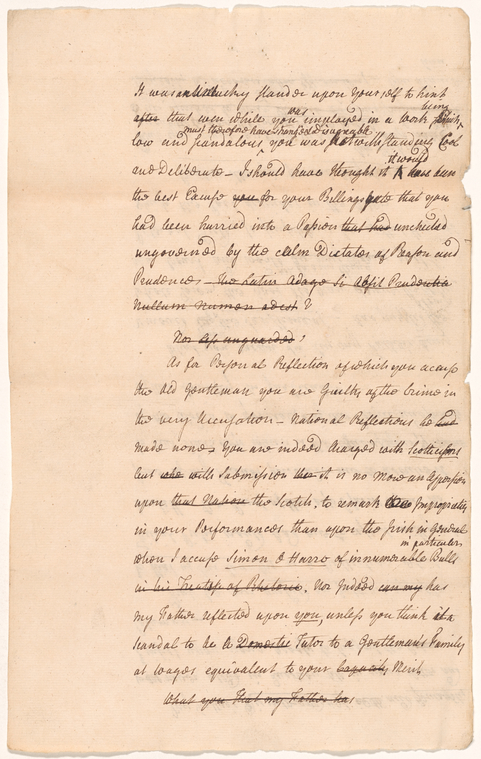 It was an unlucky slander upon yourself to hint
being
after that even while you was imployed in a work
must therefore have hompeld disagreable
low and scandalous, you was Notwithstanding Cool
it would
and Deliberate — I should have thought it have been
the best Excuse you for your Billingsgate that you
had been hurried into a Passion that had unchecked
ungoverned by the calm Dictates of Reason and
Prudence — The Latin Adage Si absit Prudentia
Nullum Numen adest?
Nor less unguarded
As for Personal Reflection of which you accuse
the old Gentleman you are Guilty of the Crime in
the very Accusation — National Reflections he had
made none. You are indeed charged with Scotticisms
but with Submission that it is no more an Aspersion
upon that Nation the Scotch, to remark the Impropriety
in your Performances than upon the Irish in General
in particular
when I accuse Simon O Harro of innumerable Bulls
in his Treatise of Rhetoric. Nor Indeed can my has
my Father reflected upon you, unless you think it a
scandal to be a Domestic Tutor to a Gentleman's Family
at wages equivalent to your Capacity Merit
What you that my Father has